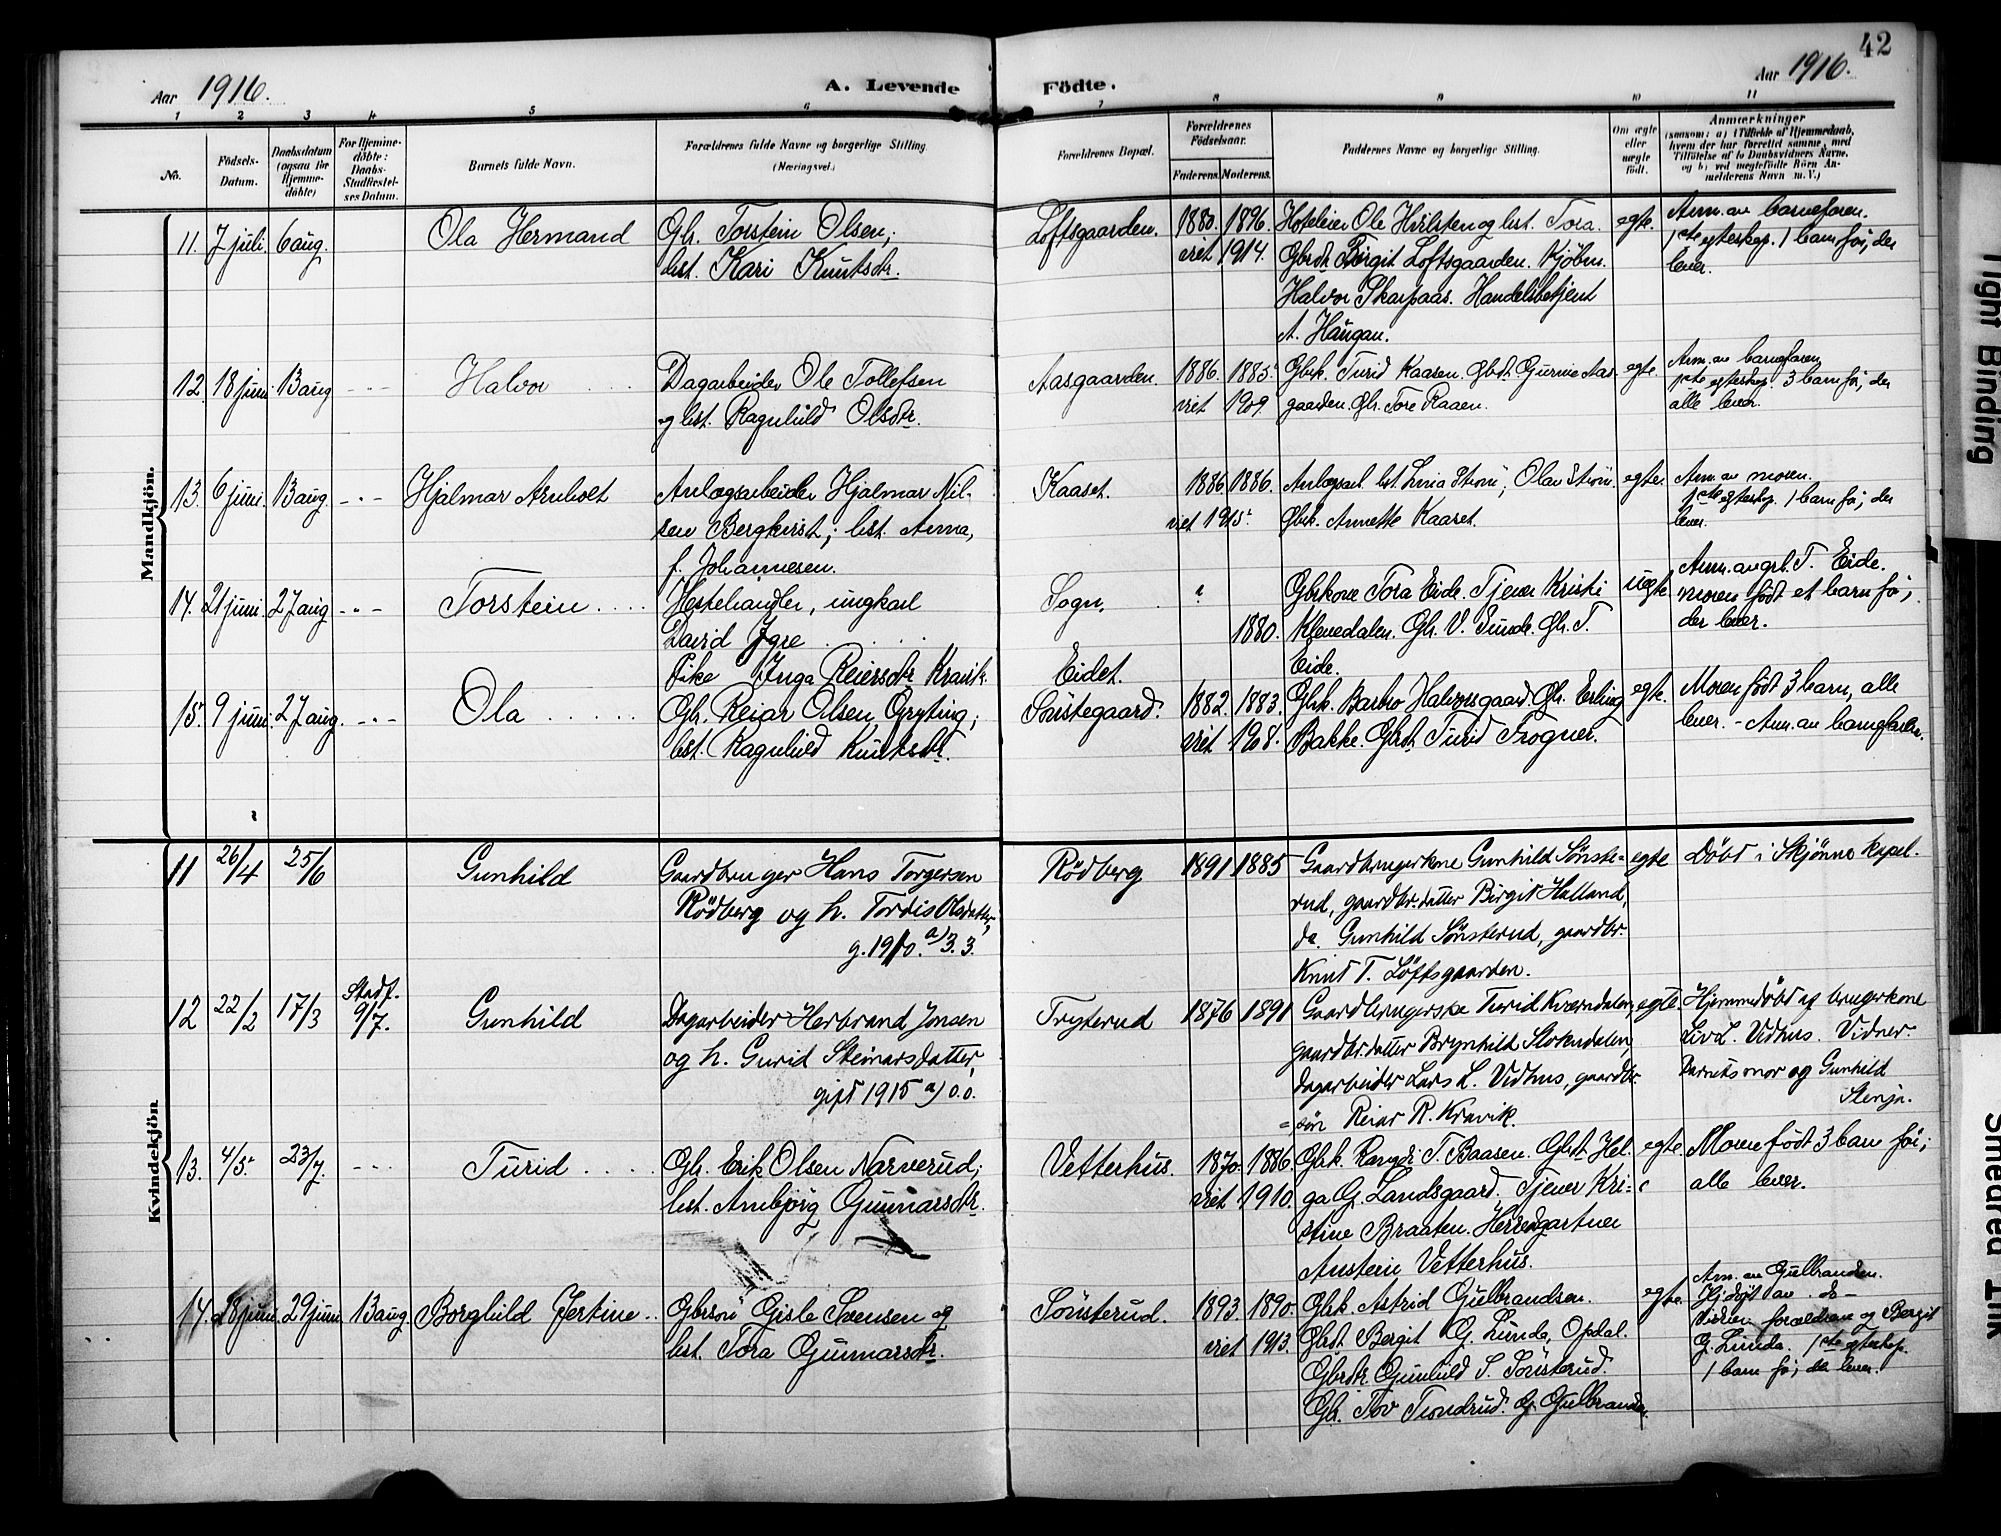 42
Aar 1916.
A. Levende
Födte.
Aar 1916.
1 2 3 4 5 6 7 8 9 10 11
No.
Födsels-
Datum.
Daabsdatum
(ogsaa for
Hjemme-
döbte)
For Hjemme-
döbte:
Daabs-
Stadfæstel-
ses Datum.
Barnets fulde Navn.
Forældrenes fulde Navne og borgerlige Stilling
(Næringsvei.)
Forældrenes Bopæl.
Forældrenes
Födselsaar.
Faderens. Moderens.
Faddernes Navne og borgerlige Stilling.
Om ægte
eller
uægte
födt.
Anmærkninger
(saasom: a) i Tilfælde af Hjemmedaab,
hvem der har forrettet samme, med
Tilföielse af to Daabsvidners Navne.
og b) ved uægtefödte Börn An-
melderens Navn m. V.)
Mandkjön.
11. 7 juli. 6 aug. Ola Hermand
Gbr. Torstein Olsen;
hst. Kari Knutsdr.
Loftsgaarden.
1880. 1896.
viet 1914.
Hoteleier Ole Hvilsten og hst. Tora.
Gbrdr. Birgit Loftsgaarden. Kjöbm.
Halvor Skarpaas. Handelsbetjent
A. Haugan.
egte.
Anm. av barnefaren.
1ste egteskap. 1 barn för, der
lever.
12. 18 juni. 13 aug - - - Halvor
Dagarbeider Ole Tollefsen
og hst. Ragnhild Olsdr.
Aasgaarden.
1886. 1885.
viet 1909.
Gbrk. Turid Kaasen. Gbdt. Gurine Aas-
gaarden. Gbr. Tore Raaen.
egte.
Anm. av barnefaren,
1ste egteskap. 3 barn för, der
alle lever.
13. 6 juni. 13 aug. - - - Hjalmar Arnholt
Anlægsarbeider Hjalmar Nil-
sen Bergkvist; hst. Anna,
f. Johannesen.
Kaaset.
1886 1886.
viet 1915.
Anlægsarb. hst. Lina Strøm; Olav Strøm
Gbrk. Annette Kaaset.
egte.
Anm. av moren.
1ste egteskap. 1 barn för, der
lever.
14. 21 juni. 27 aug - - - Torstein
Hestehandler, ungkarl
David Ygre
Pike Inga Reiersdr Kravik.
Sogn,
Eidet.
?
1880.
Gbrkone Tora Eide. Tjener Kristi
Klevedalen. Gbr. V. Gbr. T.
Eide.
uegte
Anm. av gbr. T. Eide.
Moren født et barn för;
der lever.
15. 9 juni. 27 aug. - - - Ola
Gbr. Reiar Olsen Gryting;
hst. Ragnhild Knutsdr.
Sönstegaard.
1882. 1883.
viet 1908.
Gbrk. Barbro Halvorsgaard. Gbr. Erling
Bakke. Gbrdt. Turid Frogner.
egte.
Moren født 3 barn, alle
lever. - Anm. av barnefaren.
Kvindekjön
11 26/4 25/6 Gunhild
Gaardbruger Hans Torgersen
Rödberg og h. Tordis Olsdatter,
g. 1910. a) 3. 3.
Rödberg 1891 1885
Gaardbrugerkone Gunhild Sönste-
rud, gaardbr.datter Birgit Halland,
do. Gunhild Sönsterud, gaardbr.
Knut T. Löftsgaarden.
egte
Döbt i Skjönne kapel.
12 22/2 17/3 Stadf.
9/7. Gunhild
Dagarbeider Herbrand Jonsen
og h. Gurid Steinarsdatter,
gift 1915 a) 0.0.
Tryterud 1876 1891
Gaardbrugerske Turid Kverndalen,
gaardbr.datter Brynhild Stokendalen,
dagarbeider Lars L. Vidhus, gaardbr.
= sön Reiar R. Kravik.
egte.
Hjemmedöbt af brugerkone
Liv L. Vidhus. Vidner.
Barnets mor og Gunhild
Stenja.
13. 4/5. 23/7. - - - Turid
Gbr. Erik Olsen Narverud;
hst. Ambjörg Gunnarsdr.
Vetterhus.
1870. 1886.
viet 1910.
Gbrk. Rangdi T. Baasen. Gbdt. Hel-
ga G. Landsgaard. Tjener Kri-
stine Braaten. Herredgartner
Austein Vetterhus.
egte.
Moren født 3 barn för;
alle lever.
14. 18 juni. 29 juni 13 aug. Borghild Gjertine
Gbrsön Gisle Svensen og
hst. Tora Gunnarsdr.
Sönsterud.
1893. 1890.
viet 1913.
Gbrk. Astrid Gulbrandsen.
Gbrdt. Bergit G. Lunde, Opdal.
Gbrdtr. Gunhild S. Sönsterud.
Gbr. Tov Trondrud. G. Gulbrandsen.
egte.
Anm. av Gulbrandsen.
Hj.døpt av - do -
Vidner: forældrene og Bergit
G. Lunde. 1ste egteskap.
1 barn för; der lever.
Tight Binding
Smeared Ink